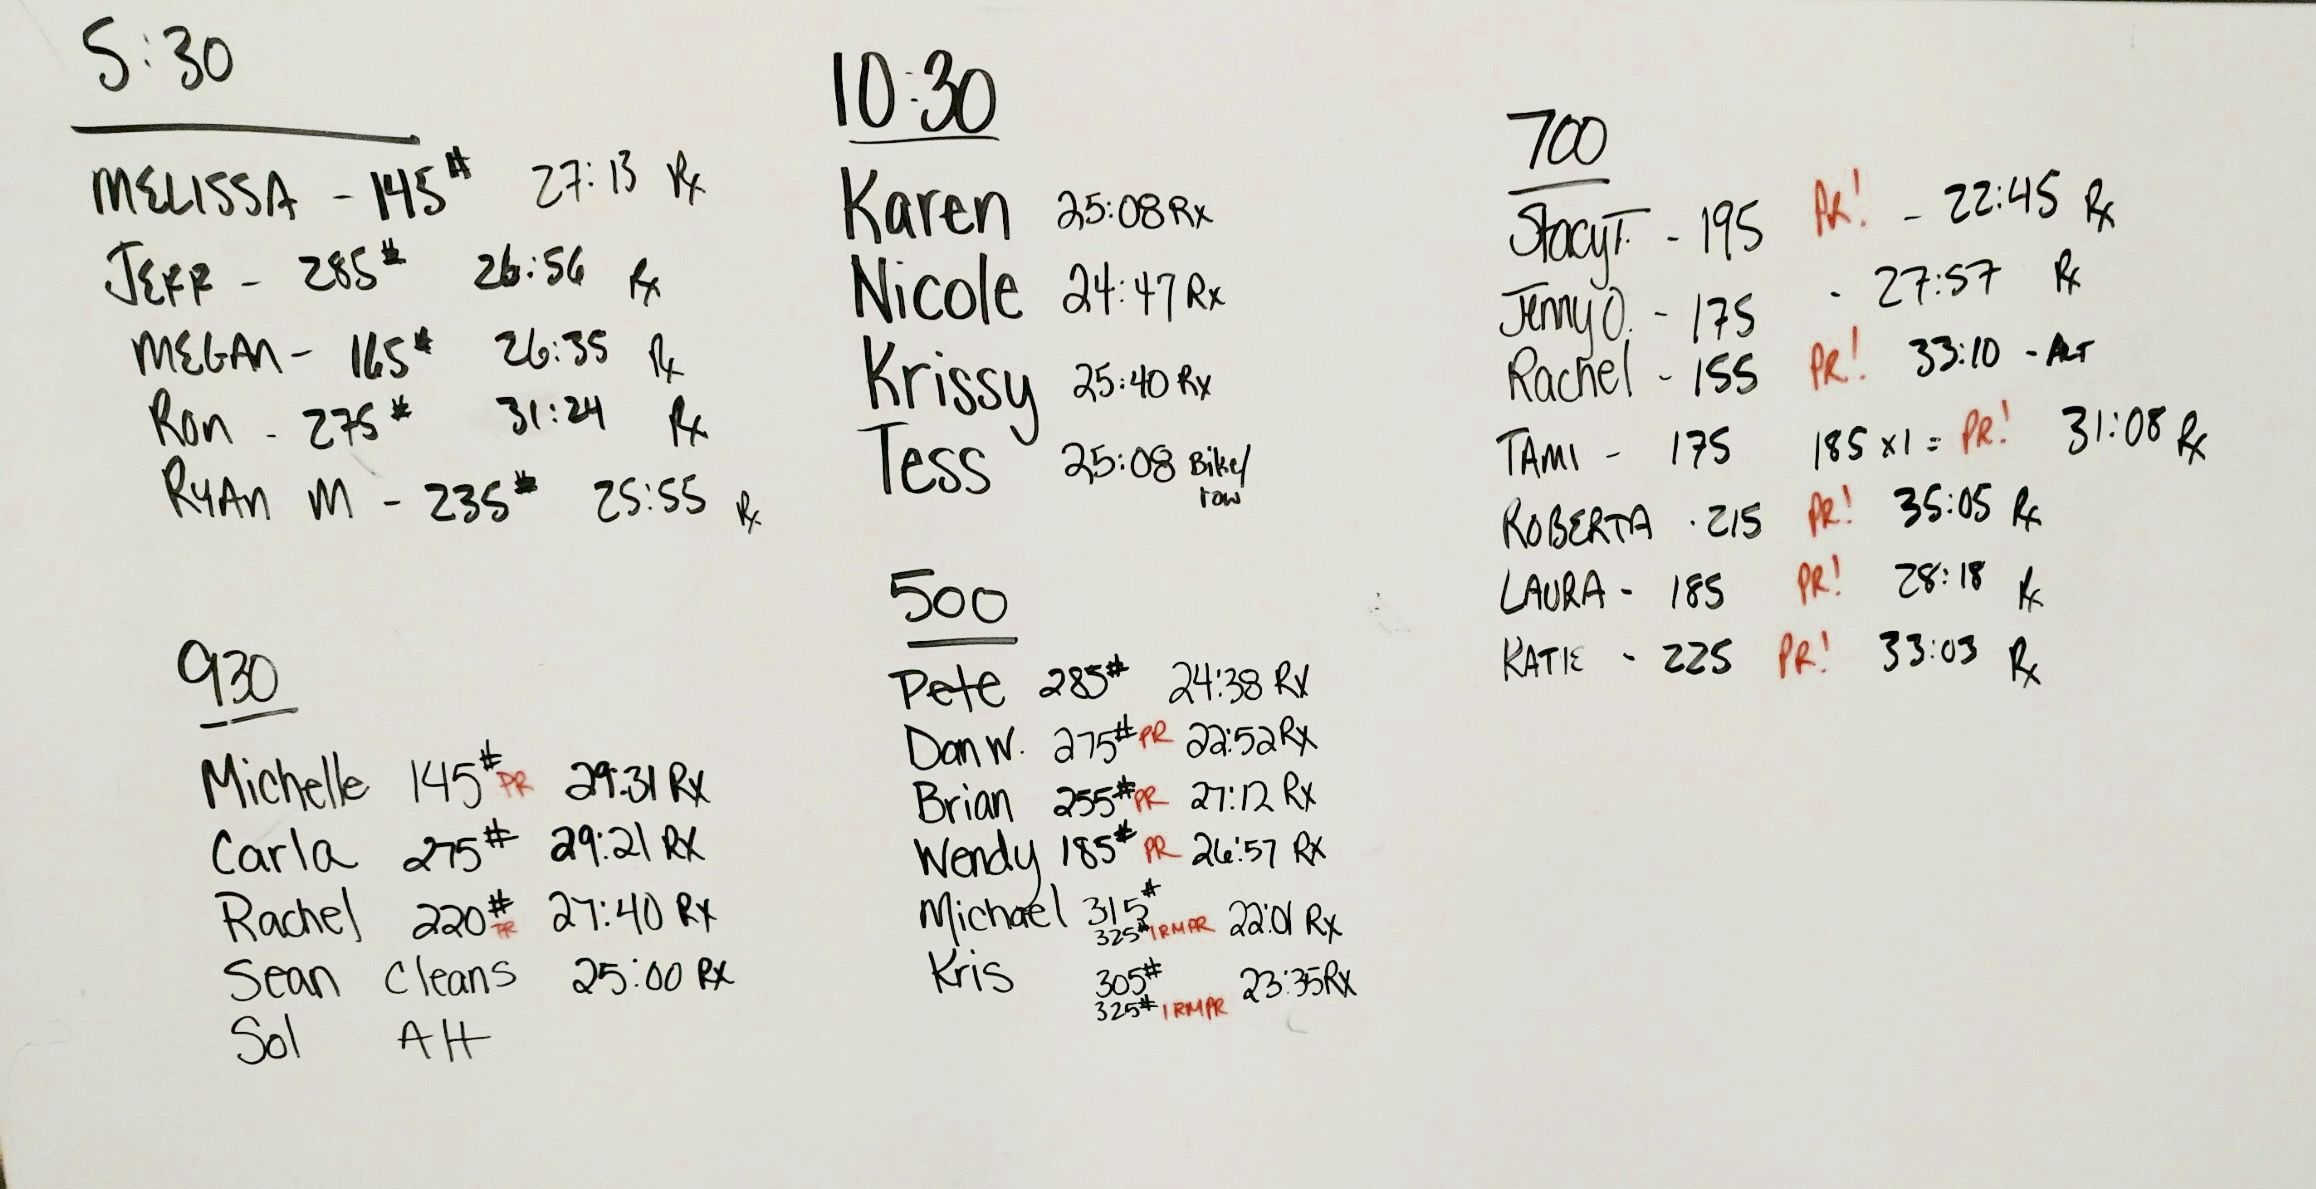 5:30
MELISSA - 145# 27:13 Rx
JEFF - 285# 26:56 Rx
MEGAN - 165# 26:35 Rx
RON - 275# 31:24 Rx
RYAN M - 235# 25:55 Rx
930
Michelle 145# PR 29:31 Rx
Carla 275# 29:21 Rx
Rachel 220# PR 27:40 Rx
Sean Cleans 25:00 Rx
Sol AH
10:30
Karen 25:08 Rx
Nicole 24:47 Rx
Krissy 25:40 Rx
Tess 25:08 Bike/
row
500
Pete 285# 24:38 Rx
Dan W. 275# PR 22:52 Rx
Brian 255# PR 27:12 Rx
Wendy 185# PR 26:57 Rx
Michael 315# 22:01 Rx
325# 1RMPR
Kris 305# 23:35 Rx
325# 1RMPR
700
Stacy T. - 195 PR! - 22:45 Rx
Jenny O. - 175 - 27:57 Rx
Rachel - 155 PR! 33:10 - ALT
TAMI - 175 185 x1 = PR! 31:08 Rx
ROBERTA - 215 PR! 35:05 Rx
LAURA - 185 PR! 28:18 Rx
KATIE - 225 PR! 33:03 Rx